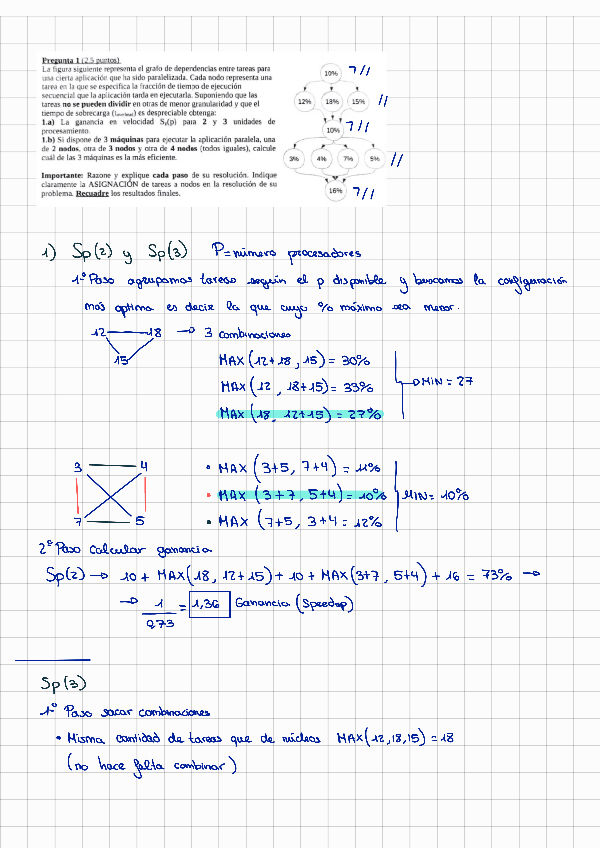 Pregunta 1 (2.5 puntos)
La figura siguiente representa el grafo de dependencias entre tareas para
una cierta aplicación que ha sido paralelizada. Cada nodo representa una
tarea en la que se especifica la fracción de tiempo de ejecución
secuencial que la aplicación tarda en ejecutarla. Suponiendo que las
tareas no se pueden dividir en otras de menor granularidad y que el
tiempo de sobrecarga (toverhead) es despreciable obtenga:
1.a) La ganancia en velocidad Sp(p) para 2 y 3 unidades de
procesamiento.
1.b) Si dispone de 3 máquinas para ejecutar la aplicación paralela, una
de 2 nodos, otra de 3 nodos y otra de 4 nodos (todos iguales), calcule
cuál de las 3 máquinas es la más eficiente.
Importante: Razone y explique cada paso de su resolución. Indique
claramente la ASIGNACIÓN de tareas a nodos en la resolución de su
problema. Recuadre los resultados finales.
10% 7//
12% 18% 15% //
10% 7//
3% 4% 7% 5% //
16% 7//
1) Sp(2) y Sp(3) P=número procesadores
1º Paso agrupamos tareas según el p disponible y buscamos la configuración
más optima es decir la que cuyo % máximo sea menor.
12 18 → 3 combinaciones
15
MAX(12+18, 15) = 30%
MAX(12, 18+15) = 33%
MAX(18, 12+15) = 27%
MIN = 27
3 4
7 5
• MAX(3+5, 7+4) = 11%
• MAX(3+7, 5+4) = 10%
• MAX(7+5, 3+4 = 12%
MIN = 10%
2º Paso calcular ganancia
Sp(2) → 10 + MAX(18, 12+15) + 10 + MAX(3+7, 5+4) + 16 = 73% →
→ 1 / 0,73 = 1,36 Ganancia (Speedup)
Sp(3)
1º Paso sacar combinaciones
• Misma cantidad de tareas que de núcleos MAX(12,18,15) = 18
(no hace falta combinar)